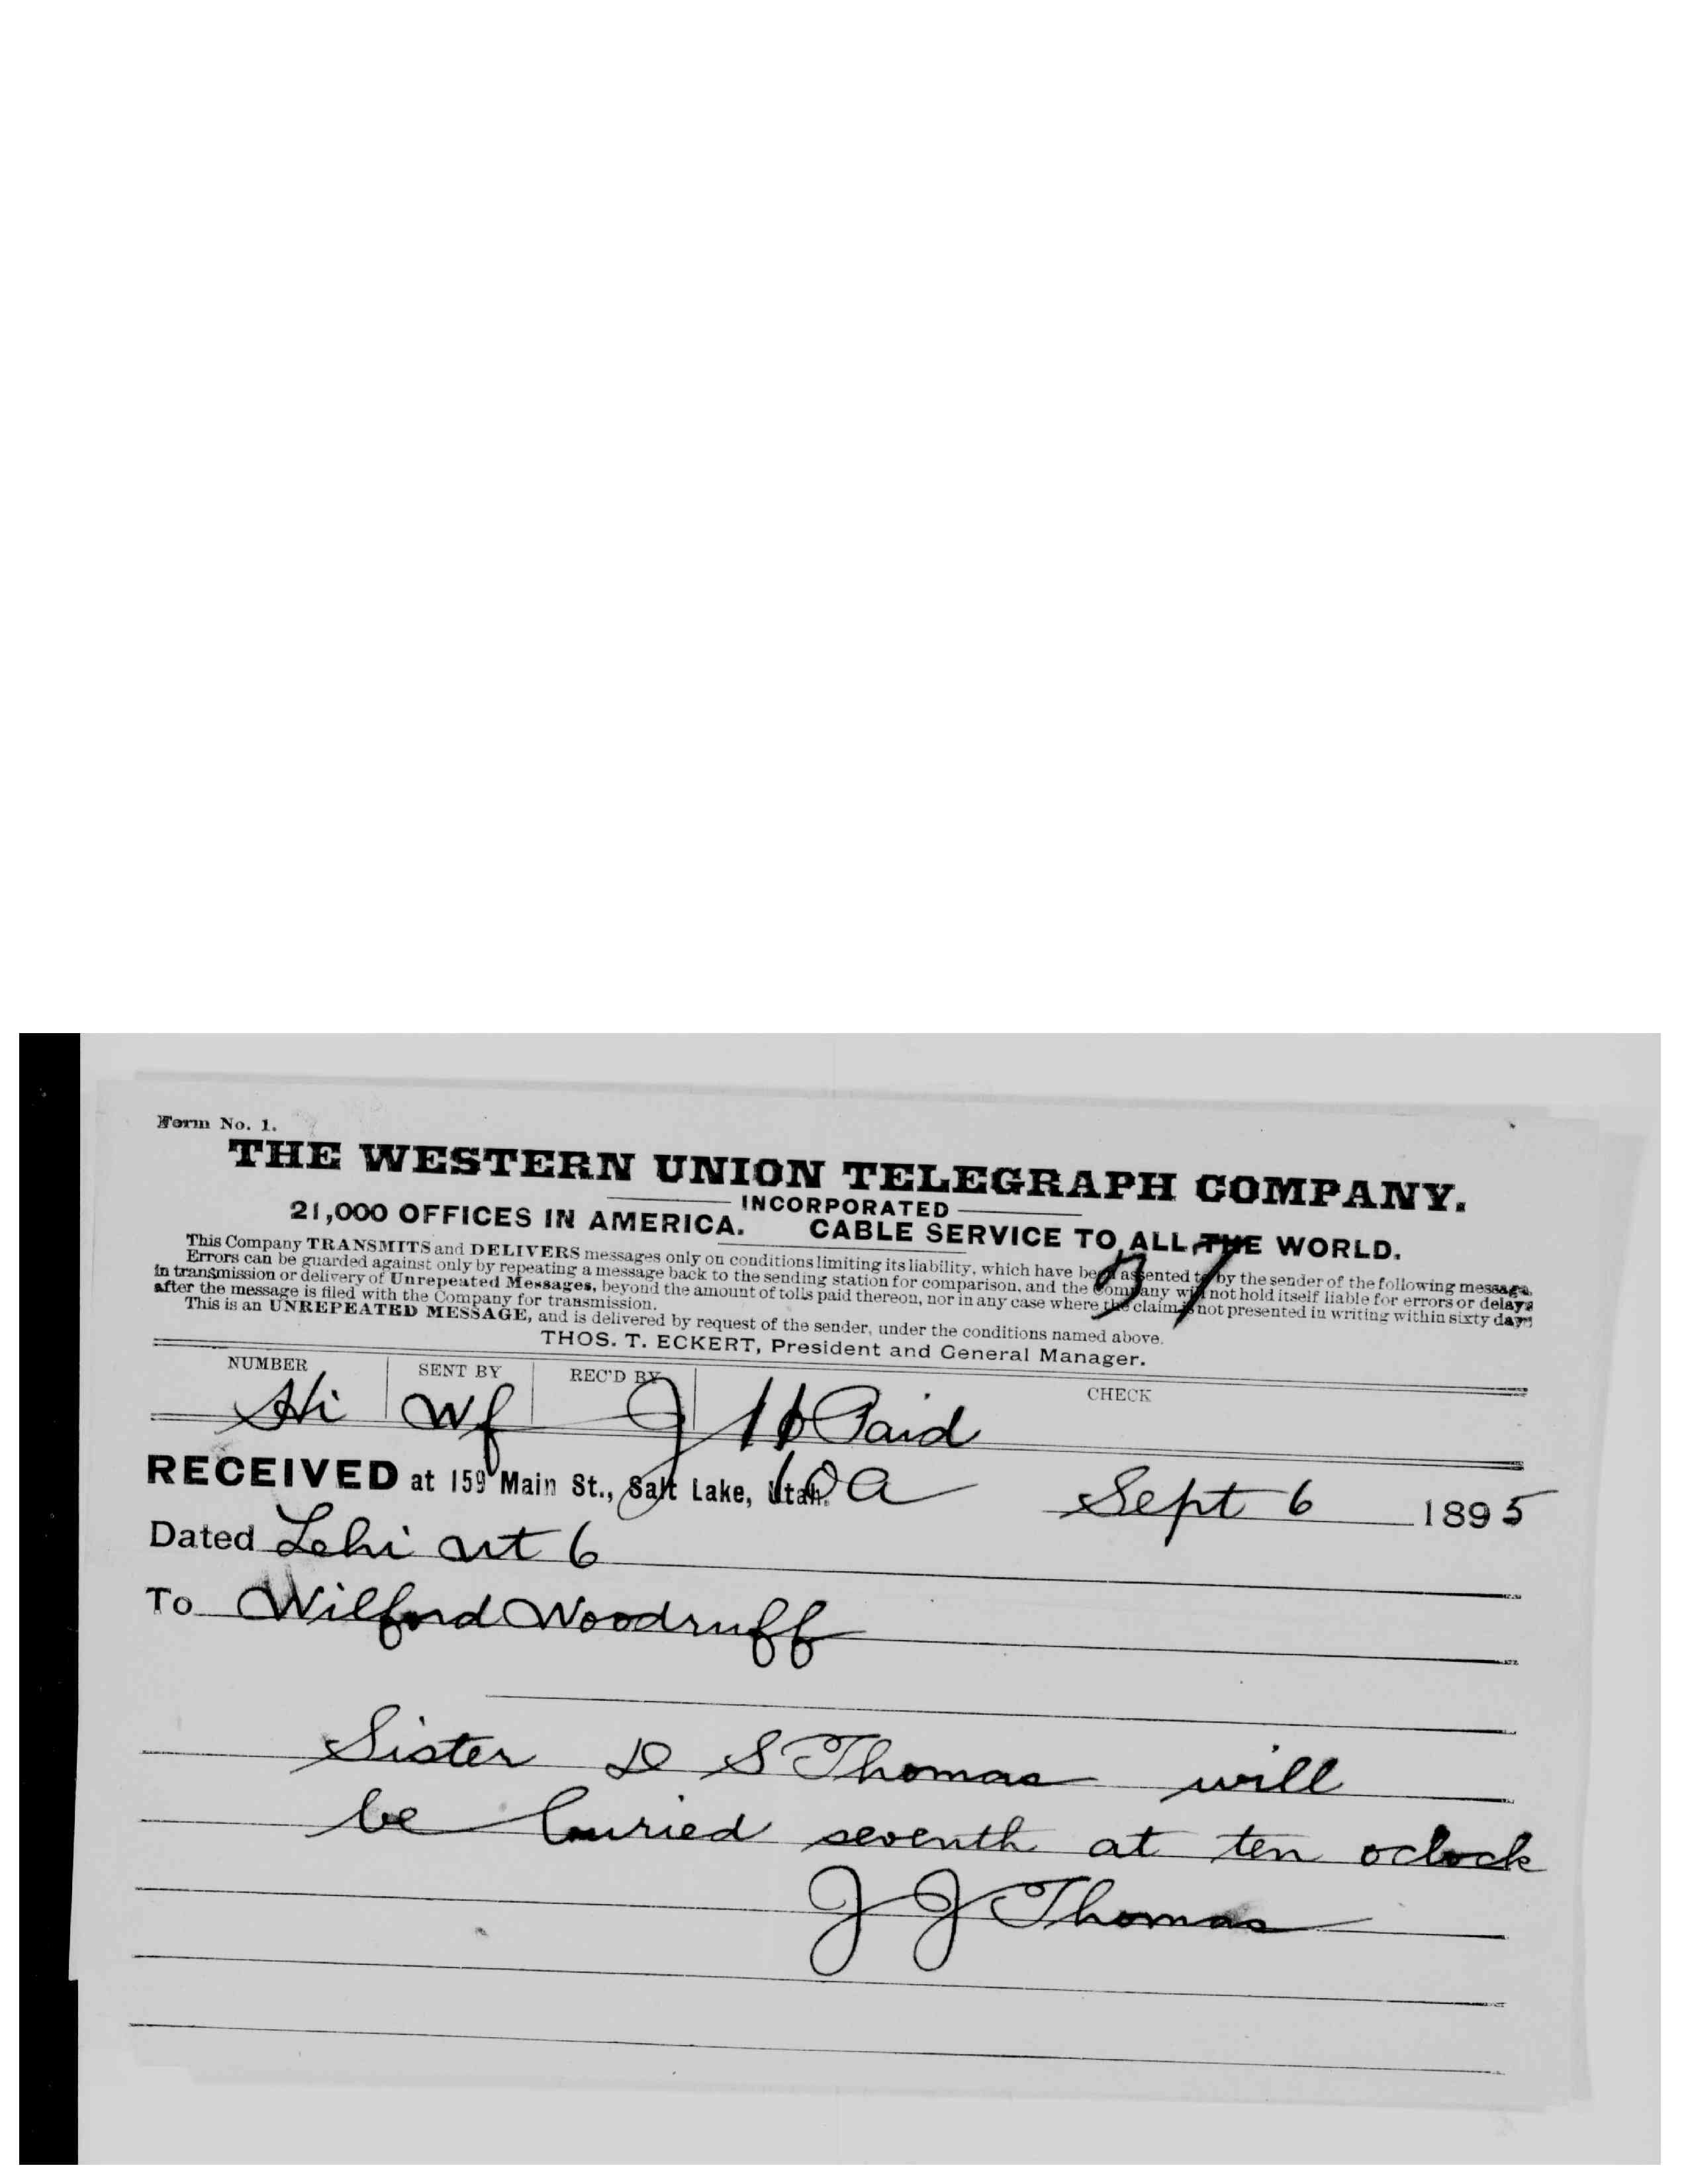 Form No. 1.
THE WESTERN UNION TELEGRAPH COMPANY.
INCORPORATED
21,000 OFFICES IN AMERICA. CABLE SERVICE TO ALL THE WORLD.
This Company TRANSMITS and DELIVERS messages only on conditions limiting its liability, which have been assented to by the sender of the following message.
Errors can be guarded against only by repeating a message back to the sending station for comparison, and the Company will not hold itself liable for errors or delays
in transmission or delivery of Unrepeated Messages, beyond the amount of tolls paid thereon, nor in any case where the claim is not presented in writing within sixty days
after the message is filed with the Company for transmission.
This is an UNREPEATED MESSAGE, and is delivered by request of the sender, under the conditions named above.
THOS. T. ECKERT, President and General Manager.
NUMBER SENT BY REC'D BY CHECK
Wf J Paid
RECEIVED at 159 Main St., Salt Lake, Utah. Sept 6 1895
Dated Lehi ut 6
To Wilford Woodruff
Sister D S Thomas will
be buried seventh at ten oclock
J J Thomas